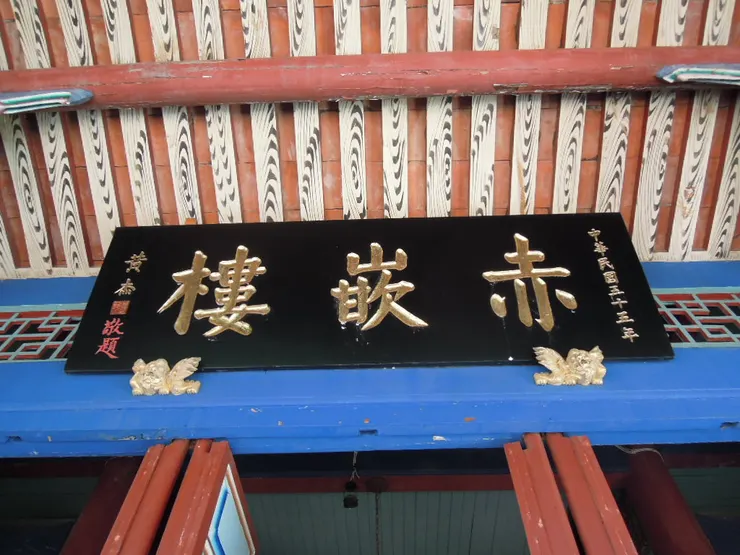 中華民國五十三年
赤嵌樓
黃杰
敬題